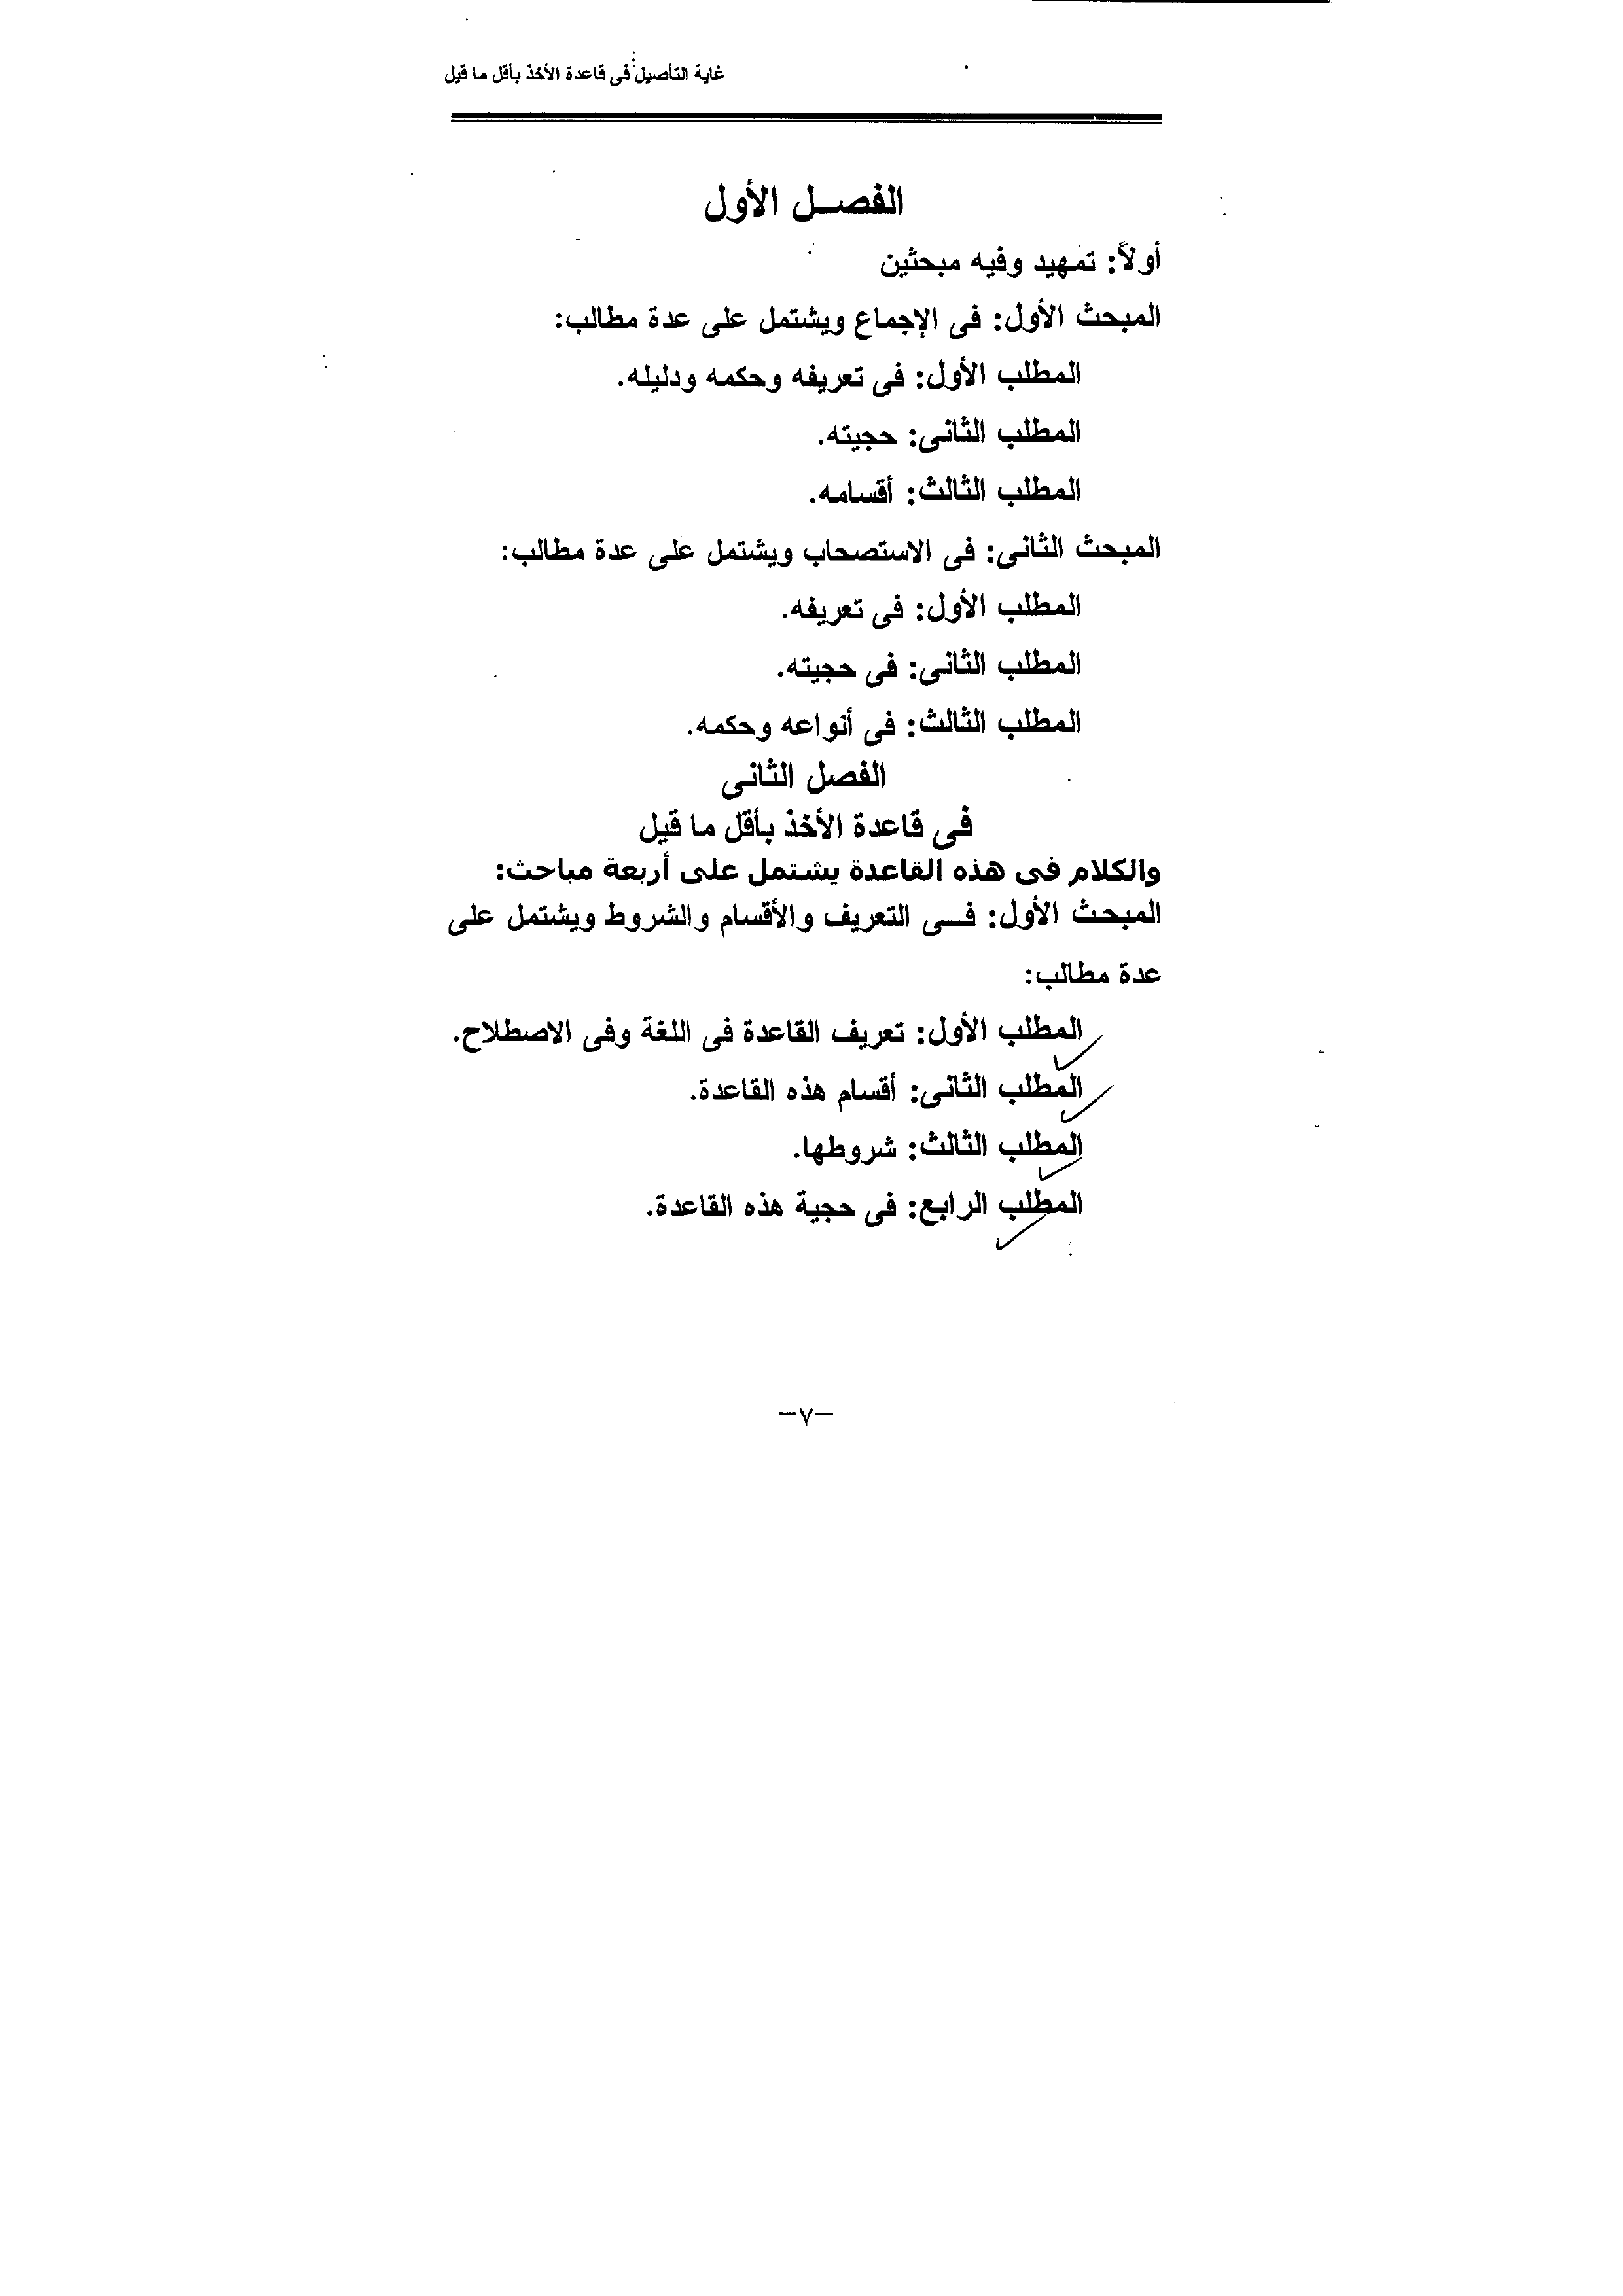 غاية التأصيل فى قاعدة الأخذ بأقل ما قيل
الفصــل الأول
أولاً: تمهيد وفيه مبحثين
المبحث الأول: فى الإجماع ويشتمل على عدة مطالب:
المطلب الأول: فى تعريفه وحكمه ودليله.
المطلب الثانى: حجيته.
المطلب الثالث: أقسامه.
المبحث الثانى: فى الاستصحاب ويشتمل على عدة مطالب:
المطلب الأول: فى تعريفه.
المطلب الثانى: فى حجيته.
المطلب الثالث: فى أنواعه وحكمه.
الفصل الثانى
فى قاعدة الأخذ بأقل ما قيل
والكلام فى هذه القاعدة يشتمل على أربعة مباحث:
المبحث الأول: فــى التعريف والأقسام والشروط ويشتمل على
عدة مطالب:
المطلب الأول: تعريف القاعدة فى اللغة وفى الاصطلاح.
المطلب الثانى: أقسام هذه القاعدة.
المطلب الثالث: شروطها.
المطلب الرابع: فى حجية هذه القاعدة.
–٧–